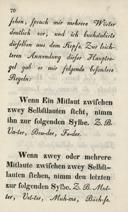 70
sehen, sprach mir mehrere Wörter
deutlich vor, und ich buchstabirte
dieselben aus dem Kopfe. Zur leich-
teren Anwendung dieser Hauptre-
gel gab er mir folgende besondere
Regeln:
Wenn Ein Mitlaut zwischen
zwey Selbstlauten steht, nimm
ihn zur folgenden Sylbe. Z. B.
Va-ter, Bru-der, Fe-der.
Wenn zwey oder mehrere
Mitlaute zwischen zwey Selbst-
lauten stehen, nimm den letzten
zur folgenden Sylbe. Z. B. Mut-
ter, Vet-ter, Muh-me, Büch-se